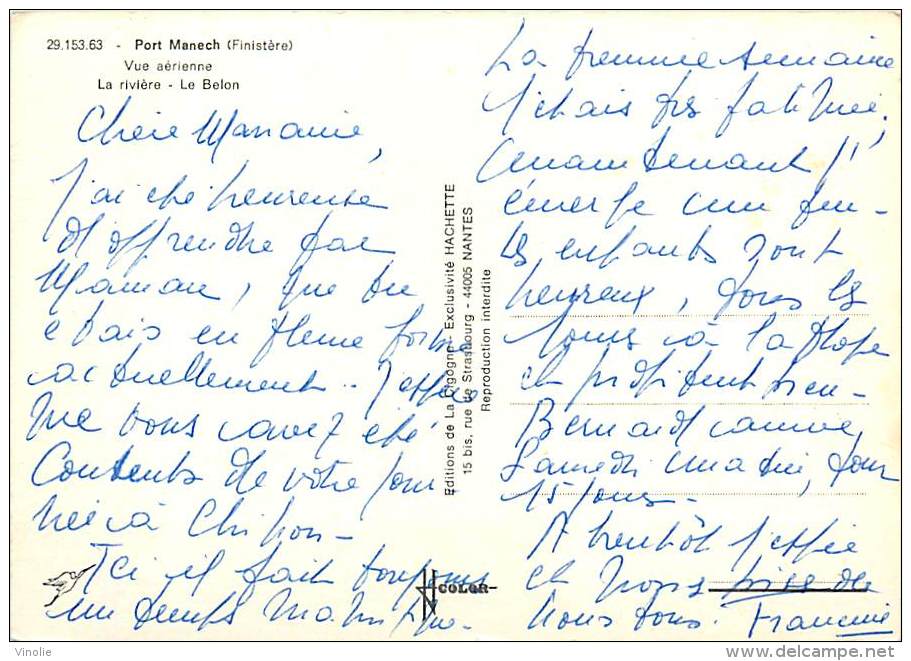 29.153.63 - Port Manech (Finistère)
Vue aérienne
La rivière - Le Belon
Chère
j'ai été heureuse
d'apprendre par
Maman, que tu
étais en pleine forme
actuellement.. J'espère
que vous avez été
Contents de votre jour
née à Chinon -
Ici il fait toujours
un temps magnifique -
Editions de La Cigogne - Exclusivité HACHETTE
15 bis, rue de Strasbourg - 44005 NANTES
Reproduction interdite
COLOR
La première semaine
j'étais très fatiguée,
maintenant j'
émerge un peu -
Les enfants sont
heureux, tous les
jours à la plage
et profitent bien -
Bernard arrive,
Samedi matin, pour
15 jours -
A bientôt j'espère
et gros
nous tous. Francine
www.delcampe.net